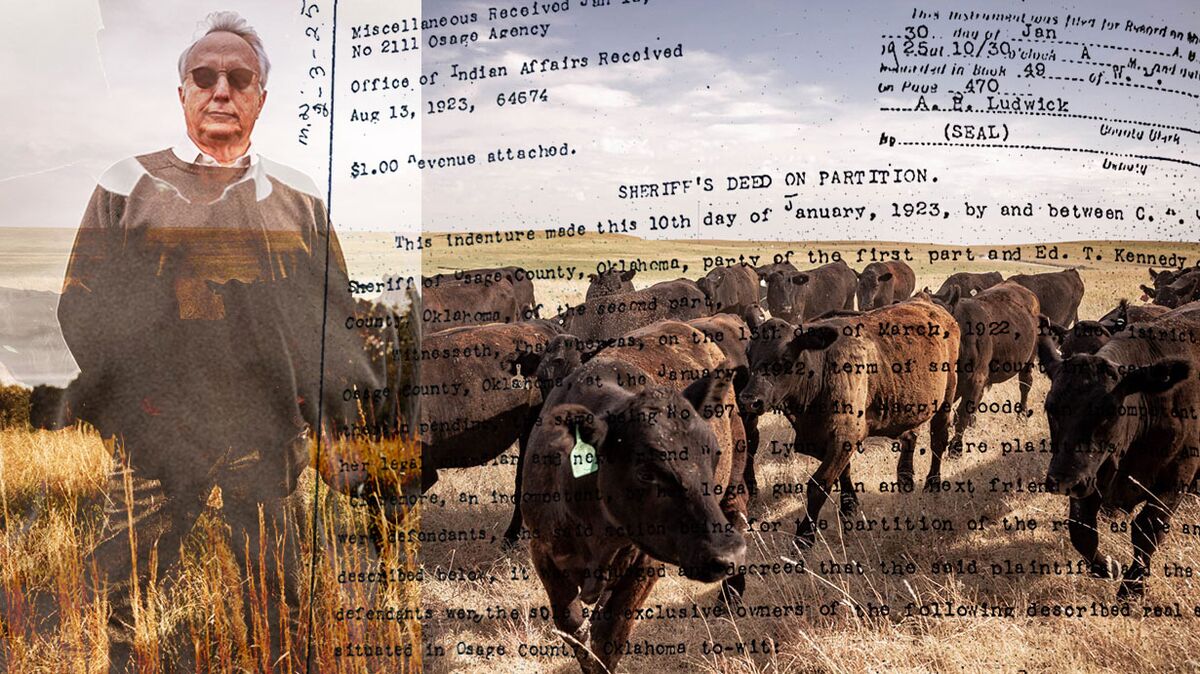 m.d. 8-3-25
Miscellaneous Received Jan
No 2111 Osage Agency
Office of Indian Affairs Received
Aug 13, 1923, 64674
$1.00 evenue attached.
This Instrument was filed for Record on the
30 day of Jan A.D.
1925at 10/30 o'clock A M., and
Recorded in Book 49 of
on Page 470
A. B. Ludwick
(SEAL) County Clerk
By
SHERIFF'S DEED ON PARTITION.
This indenture made this 10th day of January, 1923, by and between C.
Sheriff of Osage County, Oklahoma, party of the first part and Ed. T. Kennedy
County, Oklahoma, of the second part,
Witnesseth, That whereas, on the 15th day of March, 1922, in the District
Osage County, Oklahoma at the January 1922, term of said Court
then pending, the same being No 597 wherein, Maggie Goode, an incompetent
her legal guardian and next friend W. G. Lynn et al were plaintiffs and
an incompetent, by her legal guardian and next friend
were defendants, the said action being for the partition of the real estate
described below, it was adjudged and decreed that the said plaintiffs and the
defendants were the sole and exclusive owners of the following described real
situated in Osage County, Oklahoma to-wit: